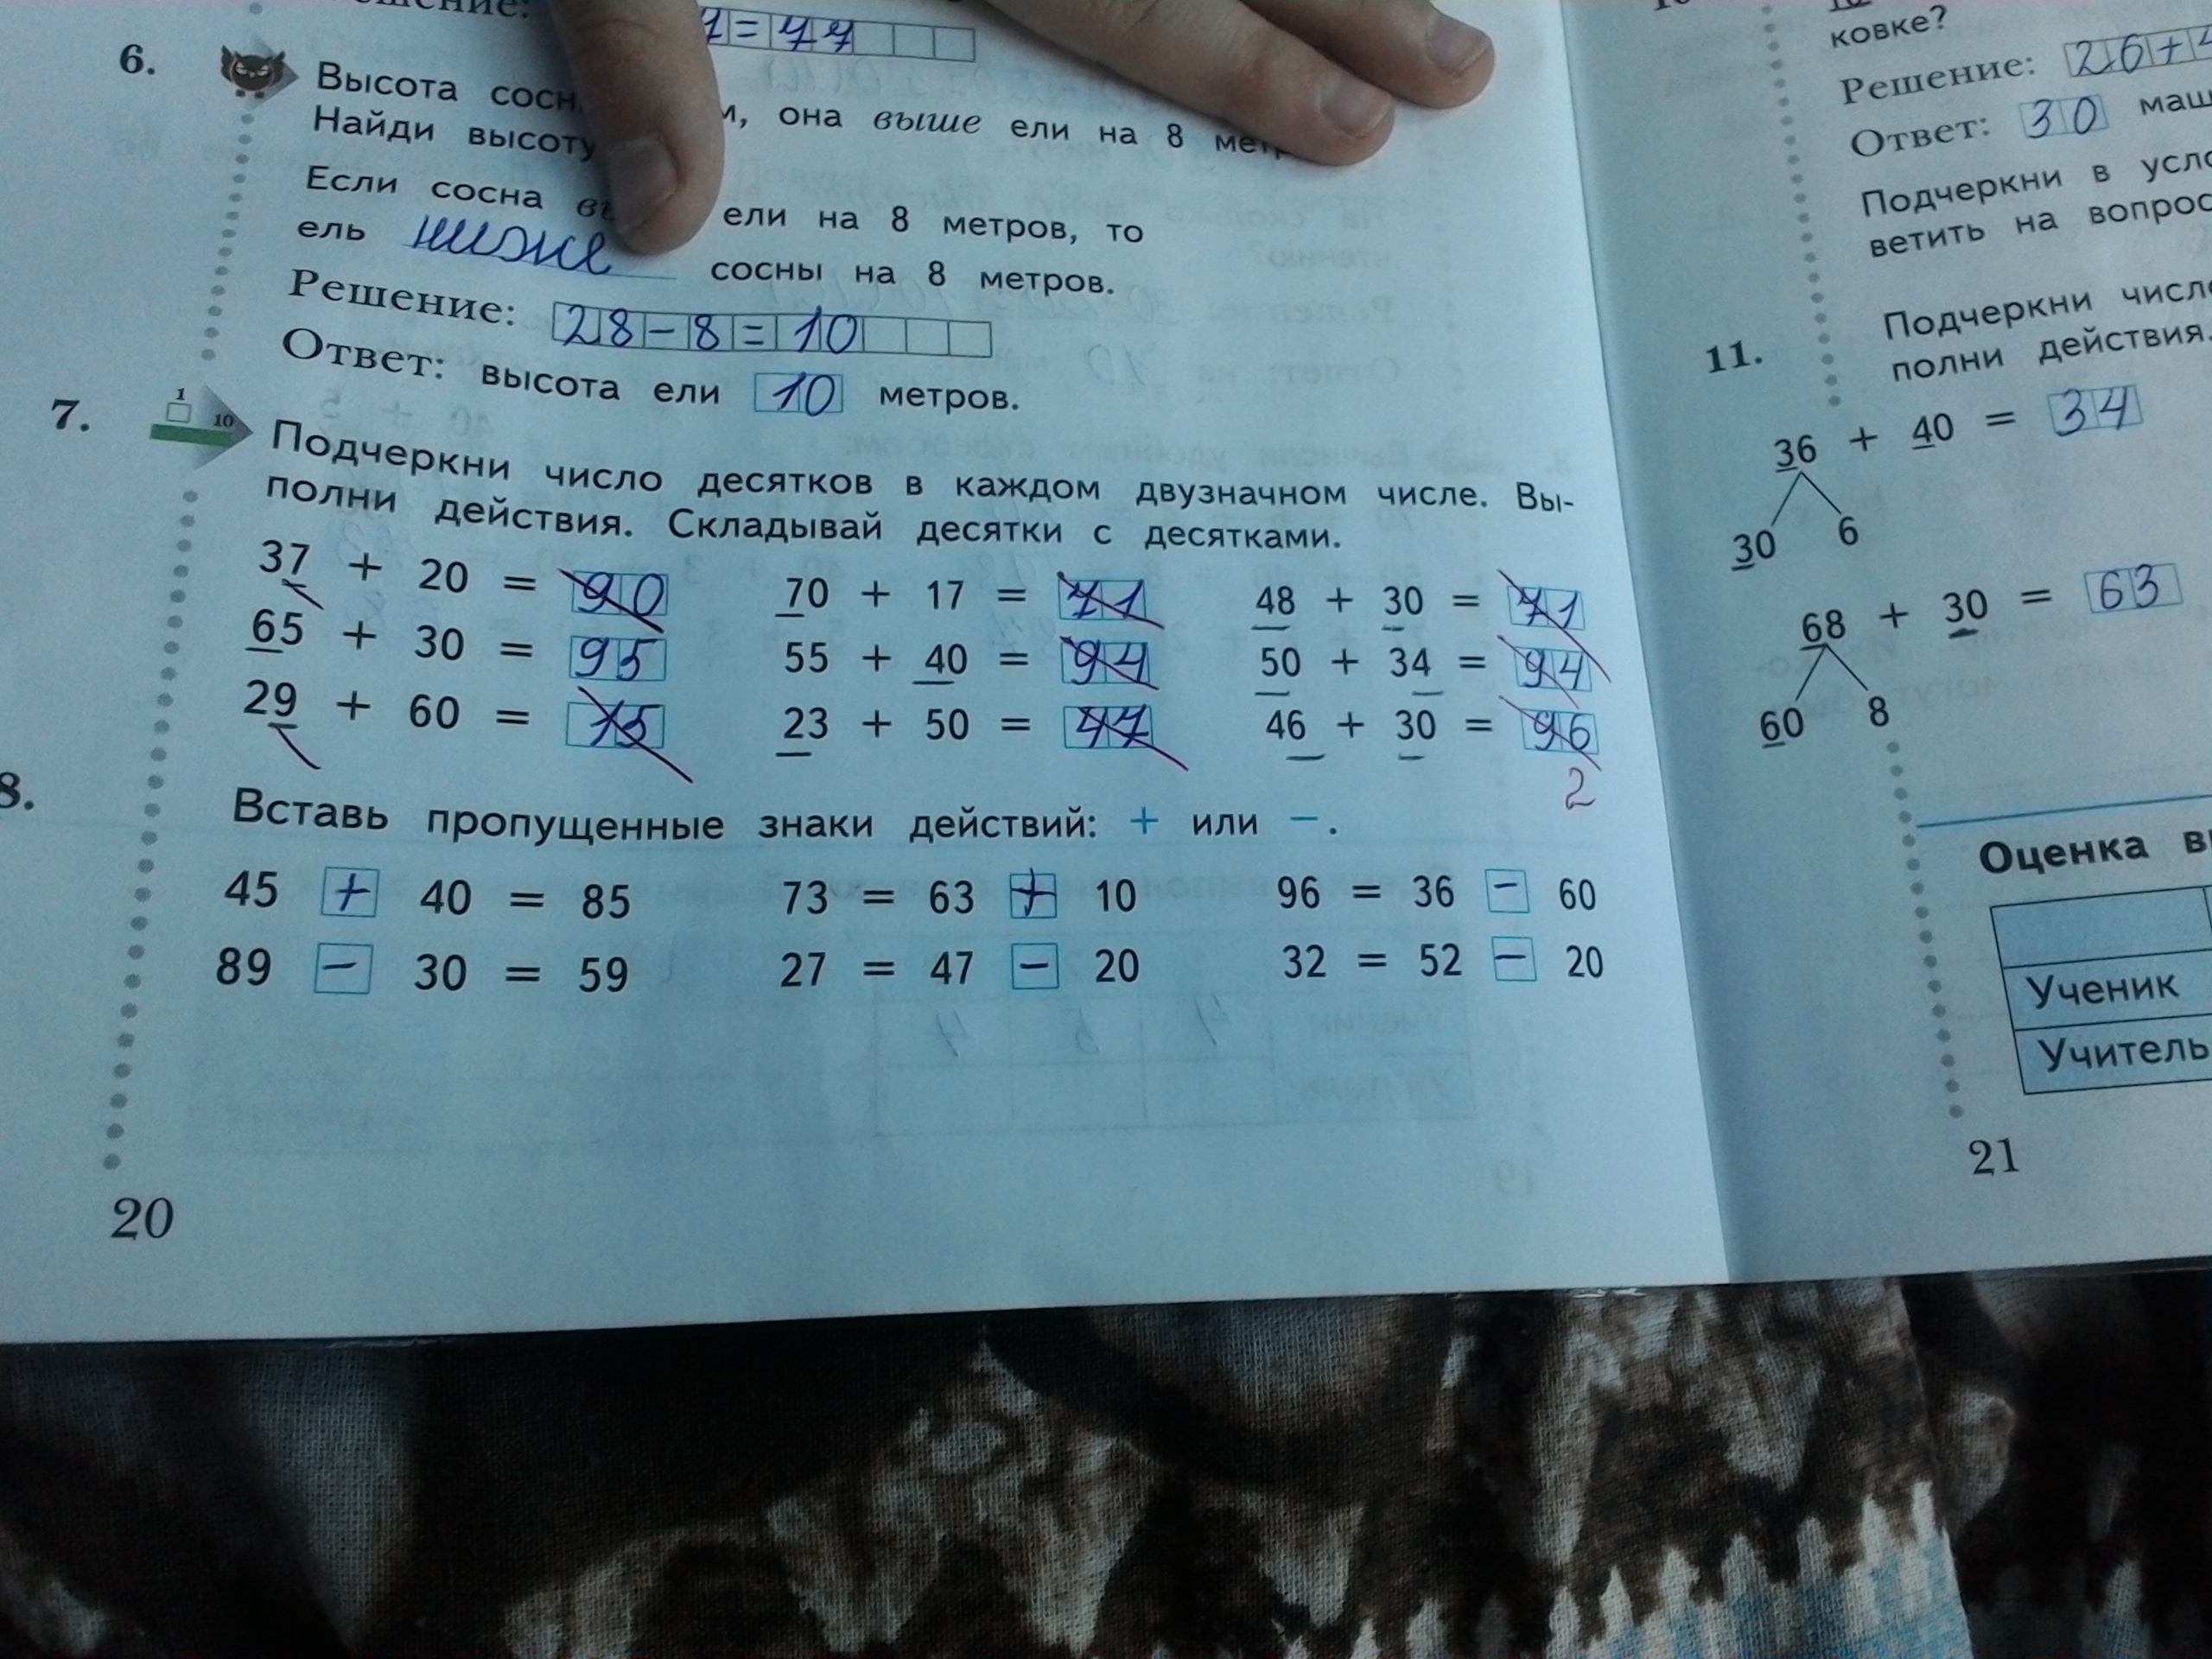 = 77
6.
Высота она выше ели на 8
Найди высоту
Если сосна ели на 8 метров, то
ель ниже сосны на 8 метров.
Решение: 28-8=10
Ответ: высота ели 10 метров.
7.
1
10
Подчеркни число десятков в каждом двузначном числе. Вы-
полни действия. Складывай десятки с десятками.
37 + 20 = 90 70 + 17 = 71 48 + 30 = 71
65 + 30 = 95 55 + 40 = 94 50 + 34 = 94
29 + 60 = 15 23 + 50 = 47 46 + 30 = 96
2
8.
Вставь пропущенные знаки действий: + или −.
45 + 40 = 85 73 = 63 + 10 96 = 36 − 60
89 − 30 = 59 27 = 47 − 20 32 = 52 − 20
20
ковке?
Решение: 26+
Ответ: 30
Подчеркни в
ветить на
11.
Подчеркни
полни действия.
36 + 40 = 34
30 6
68 + 30 = 63
60 8
Оценка
Ученик
Учитель
21